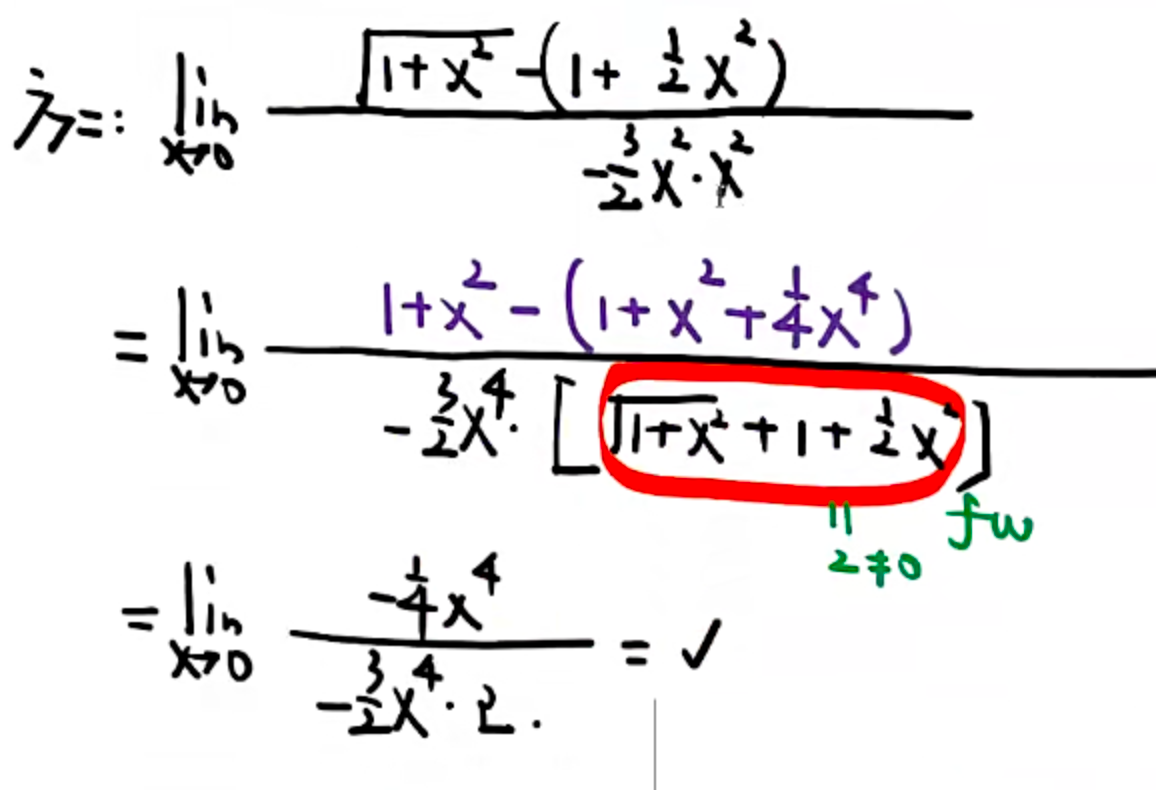 法二: lim x→0 (√(1+x²) - (1 + 1/2 x²)) / (-3/2 x² · x²)
= lim x→0 (1+x² - (1+x²+1/4 x⁴)) / (-3/2 x⁴ · [√(1+x²) + 1 + 1/2 x²])
|| 2≠0
= lim x→0 (-1/4 x⁴) / (-3/2 x⁴ · 2.) = ✓